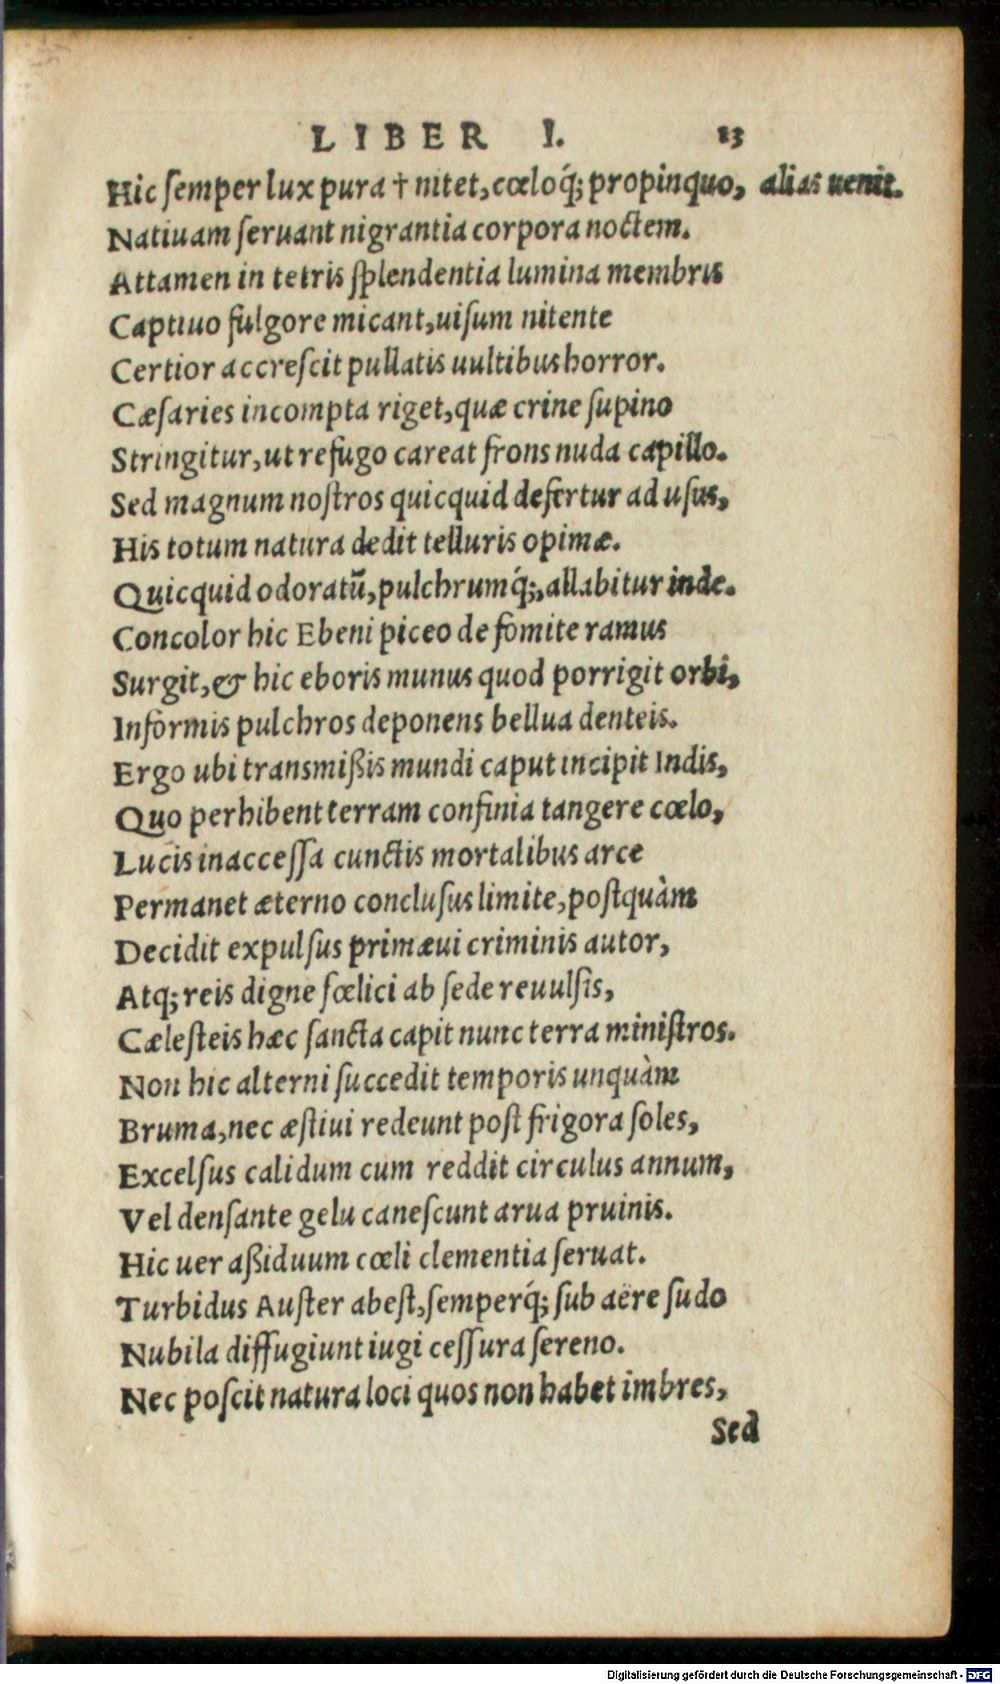 LIBER I. 13
Hic semper lux pura † nitet, cœloq́; propinquo, alias uenit.
Natiuam seruant nigrantia corpora noctem.
Attamen in tetris splendentia lumina membris
Captiuo fulgore micant, uisum nitente
Certior accrescit pullatis uultibus horror.
Cæsaries incompta riget, quæ crine supino
Stringitur, ut refugo careat frons nuda capillo.
Sed magnum nostros quicquid defertur ad usus,
His totum natura dedit telluris opimæ.
Quicquid odoratũ, pulchrumq́;, allabitur inde.
Concolor hic Ebeni piceo de fomite ramus
Surgit, & hic eboris munus quod porrigit orbi,
Informis pulchros deponens bellua denteis.
Ergo ubi transmißis mundi caput incipit Indis,
Quo perhibent terram confinia tangere cœlo,
Lucis inaccessa cunctis mortalibus arce
Permanet æterno conclusus limite, postquàm
Decidit expulsus primæui criminis autor,
Atq; reis digne fœlici ab sede reuulsis,
Cælesteis hæc sancta capit nunc terra ministros.
Non hic alterni succedit temporis unquàm
Bruma, nec æstiui redeunt post frigora soles,
Excelsus calidum cum reddit circulus annum,
Vel densante gelu canescunt arua pruinis.
Hic uer aßiduum cœli clementia seruat.
Turbidus Auster abest, semperq́; sub aëre sudo
Nubila diffugiunt iugi cessura sereno.
Nec poscit natura loci quos non habet imbres,
Sed
Digitalisierung gefördert durch die Deutsche Forschungsgemeinschaft - DFG